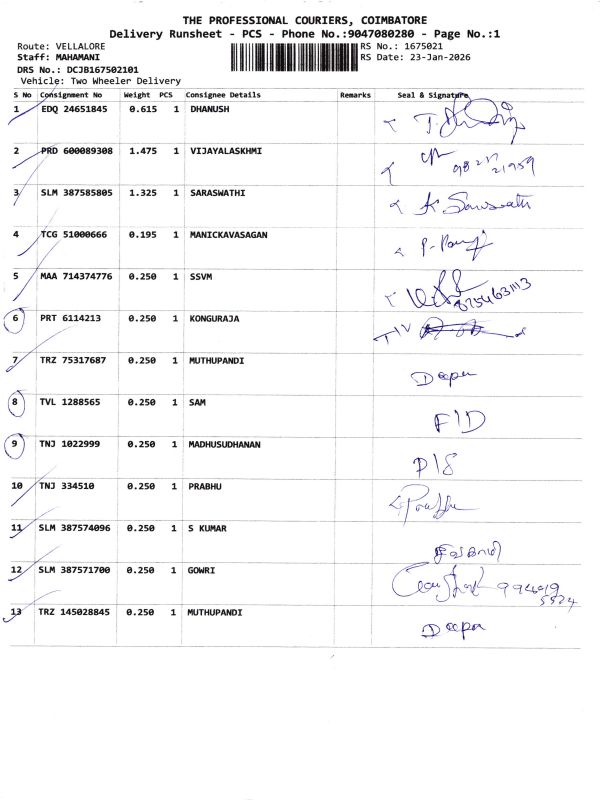 THE PROFESSIONAL COURIERS, COIMBATORE
Delivery Runsheet - PCS - Phone No.:9047080280 - Page No.:1
Route: VELLALORE RS No.: 1675021
Staff: MAHAMANI RS Date: 23-Jan-2026
DRS No.: DCJB167502101
Vehicle: Two Wheeler Delivery
S No Consignment No Weight PCS Consignee Details Remarks Seal & Signature
1 EDQ 24651845 0.615 1 DHANUSH
2 PRD 600089308 1.475 1 VIJAYALASKHMI
3 SLM 387585805 1.325 1 SARASWATHI K Saraswathi
4 TCG 51000666 0.195 1 MANICKAVASAGAN
5 MAA 714374776 0.250 1 SSVM
6 PRT 6114213 0.250 1 KONGURAJA
7 TRZ 75317687 0.250 1 MUTHUPANDI Deepa
8 TVL 1288565 0.250 1 SAM F/D
9 TNJ 1022999 0.250 1 MADHUSUDHANAN D/S
10 TNJ 334510 0.250 1 PRABHU
11 SLM 387574096 0.250 1 S KUMAR சிவகாமி
12 SLM 387571700 0.250 1 GOWRI
13 TRZ 145028845 0.250 1 MUTHUPANDI Deepa